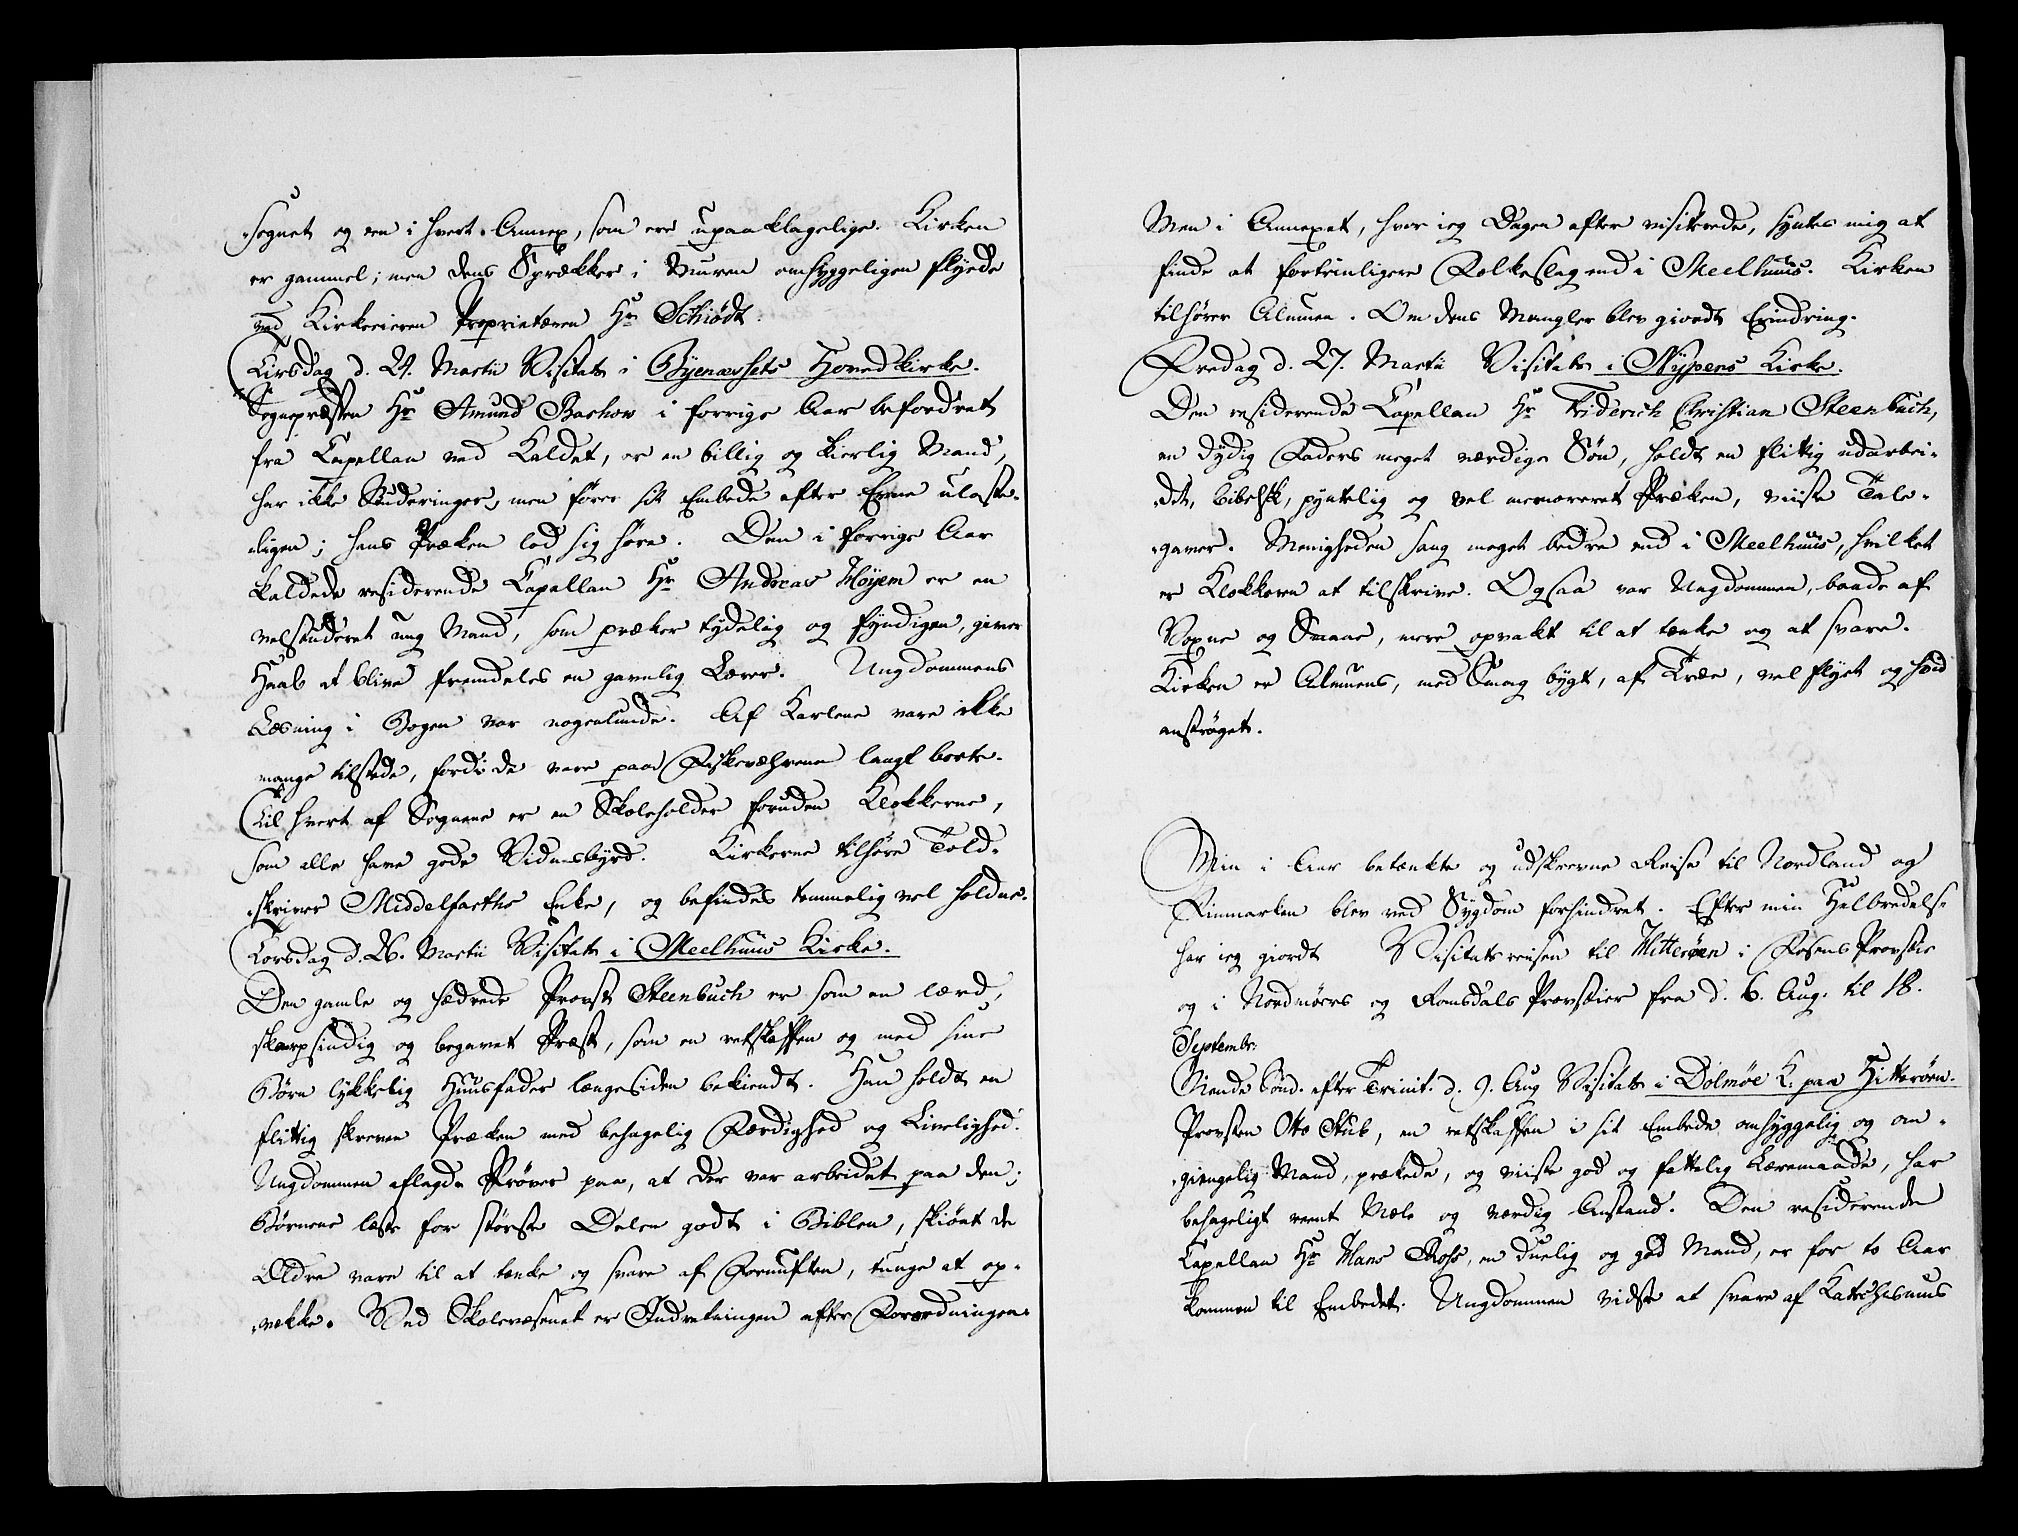 Sognet og een i hvert Annex, som ere upaaklagelige. Kirken
er gammel; men dens Sprækker i Muren omhyggeligen flyede
ved Kirkeeieren Proprietæren Hr Schiødt.
Tirsdag d. 24. Martii Visitats i Byenæssets Hovedkirke.
Sognepræsten Hr Amund Bachow i forrige Aar befordret
fra Capellan ved Kaldet, er en billig og kierlig Mand,
har ikke Studeringer, men fører sit Embede efter Evne ulaste-
ligen; hans Præken lod sig høre. Den i forrige Aar
kaldede residerende Capellan Hr Andreas Høyem er en
velstuderet ung Mand, som præker tydelig og fyndigen, giver
Haab at blive fremdeles en gavnlig Lærer. Ungdommens
Læsning i Bogen var nogenlunde. Af Karlene vare ikke
mange tilstede, fordi de vare paa Fiskeværene langt borte.
Til hvert af Sognene er en Skoleholder foruden Klokkerne,
som alle have gode Vidnesbyrd. Kirkerne tilhøre Told-
skriver Middelfarths Enke, og befindes temmelig vel holdne.
Torsdag d. 26. Martii Visitats i Meelhuus Kirke.
Den gamle og hædrede Provst Steenbuch er som en lærd,
skarpsindig og begavet Præst, som en retskaffen og med sine
Børn lykkelig Huusfader længesiden bekiendt. Han holdt en
flittig skreven Præken med behagelig Færdighed og Livelighed.
Ungdommen aflagde Prøver paa, at der var arbeidet paa den;
Børnene læste for største Delen godt i Biblen, skiønt de
Ældre vare til at tænke og svare af Fornuften, tunge at op-
vække. Ved Skolevæsenet er Indretningen efter Forordningen.
Men i Annexet, hvor ieg Dagen efter visiterede, syntes mig at
finde et fortrinligere Folkeslag end i Meelhuus. Kirken
tilhører Almuen. Om dens Mangler blev giordt Erindring.
Fredag d. 27. Martii Visitats i Nypens Kirke.
Den residerende Capellan Hr Friderich Christian Steenbuch,
en dydig Faders meget værdige Søn, holdt en flittig udarbei-
det, bibelsk, pyntelig og vel memoreret Præken, viiste Tale-
gaver. Menigheden sang meget bedre end i Meelhuus, hvilket
er Klokkeren at tilskrive. Ogsaa var Ungdommen, baade af
Voxne og Smaae, mere opvakt til at tænke og at svare.
Kirken er Almuens, med Smag bygt, af Træe, vel flyet og hvid
anstrøget.
Min i Aar betænkte og udskrevne Reise til Nordland og
Finmarken blev ved Sygdom forhindret. Efter min Helbredelse
har ieg giordt Visitatsreisen til Hitterøen i Fosens Provstie
og i Nordmøers og Romsdals Provstier fra d. 6. Aug. til 18.
Septembr:
Niende Sønd. efter Trinit. d. 9. Aug Visitats i Dolmøe K. paa Hitterøen.
Provsten Otto Stub, en retskaffen i sit Embede omhyggelig og om-
giengelig Mand, prækede, og viiste god og fattelig Læremaade, har
behageligt reent Mæle og værdig Anstand. Den residerende
Capellan Hr Hans Ross, en duelig og god Mand, er for to Aar
kommen til Embedet. Ungdommen vidste at svare af Katechismus